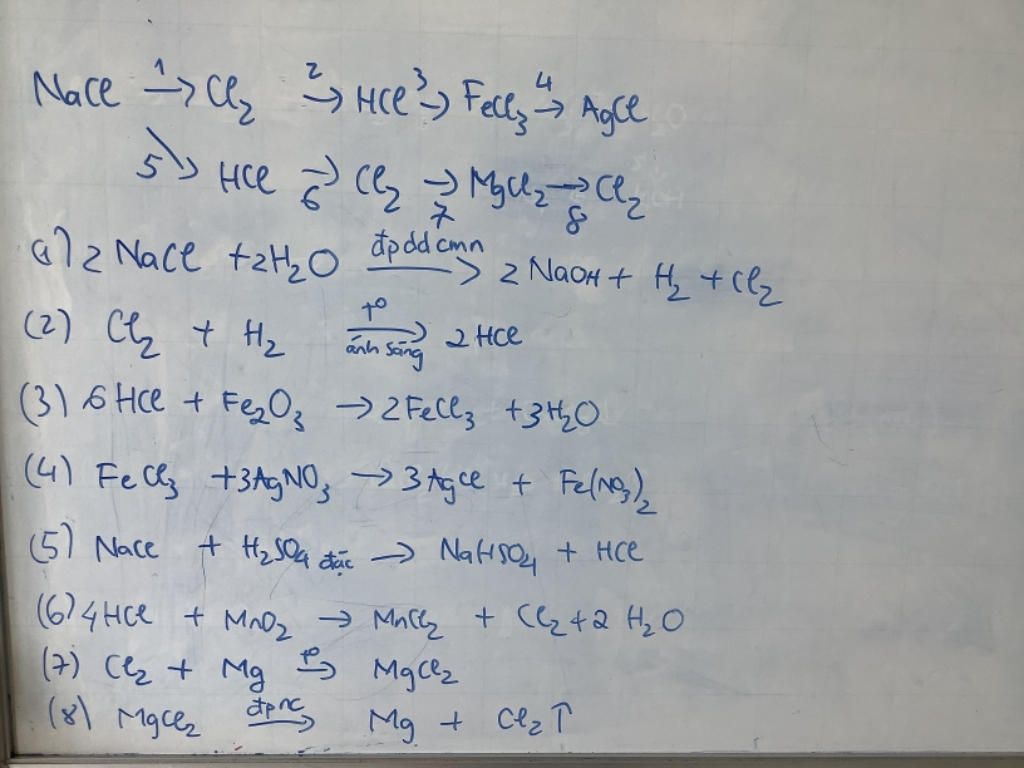 NaCl →1 Cl2 →2 HCl →3 FeCl3 →4 AgCl
5↘ HCl →6 Cl2 →7 MgCl2 →8 Cl2
(1) 2 NaCl + 2H2O →đpddcmn 2 NaOH + H2 + Cl2
(2) Cl2 + H2 →t° ánh sáng 2 HCl
(3) 6 HCl + Fe2O3 → 2FeCl3 + 3H2O
(4) FeCl3 + 3AgNO3 → 3 AgCl + Fe(NO3)2
(5) NaCl + H2SO4 đặc → NaHSO4 + HCl
(6) 4HCl + MnO2 → MnCl2 + Cl2 + 2 H2O
(7) Cl2 + Mg →t° MgCl2
(8) MgCl2 →đpnc Mg + Cl2 ↑